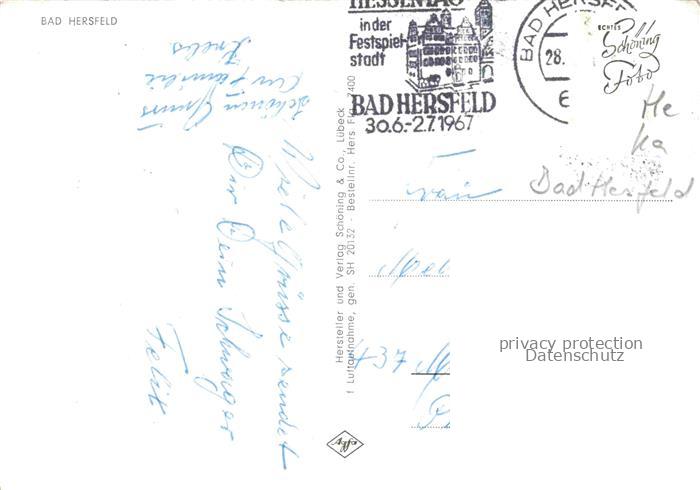 BAD HERSFELD
HESSENTAG
in der
Festspiel-
stadt
BAD HERSFELD
30.6.-2.7.1967
BAD HERSFE
28.
ECHTES
Schöning
Foto
He
ka
Bad Hersfeld
Viele Grüsse sendet
Dir Dein Schwager
Felix
Schönen Gruss
an Familie
Krebs
Hersteller und Verlag Schöning & Co., Lübeck
f Luftaufnahme, gen. SH 20132 · Bestellnr. Hers F 2400
Frau
437
Agfa
privacy protection
Datenschutz